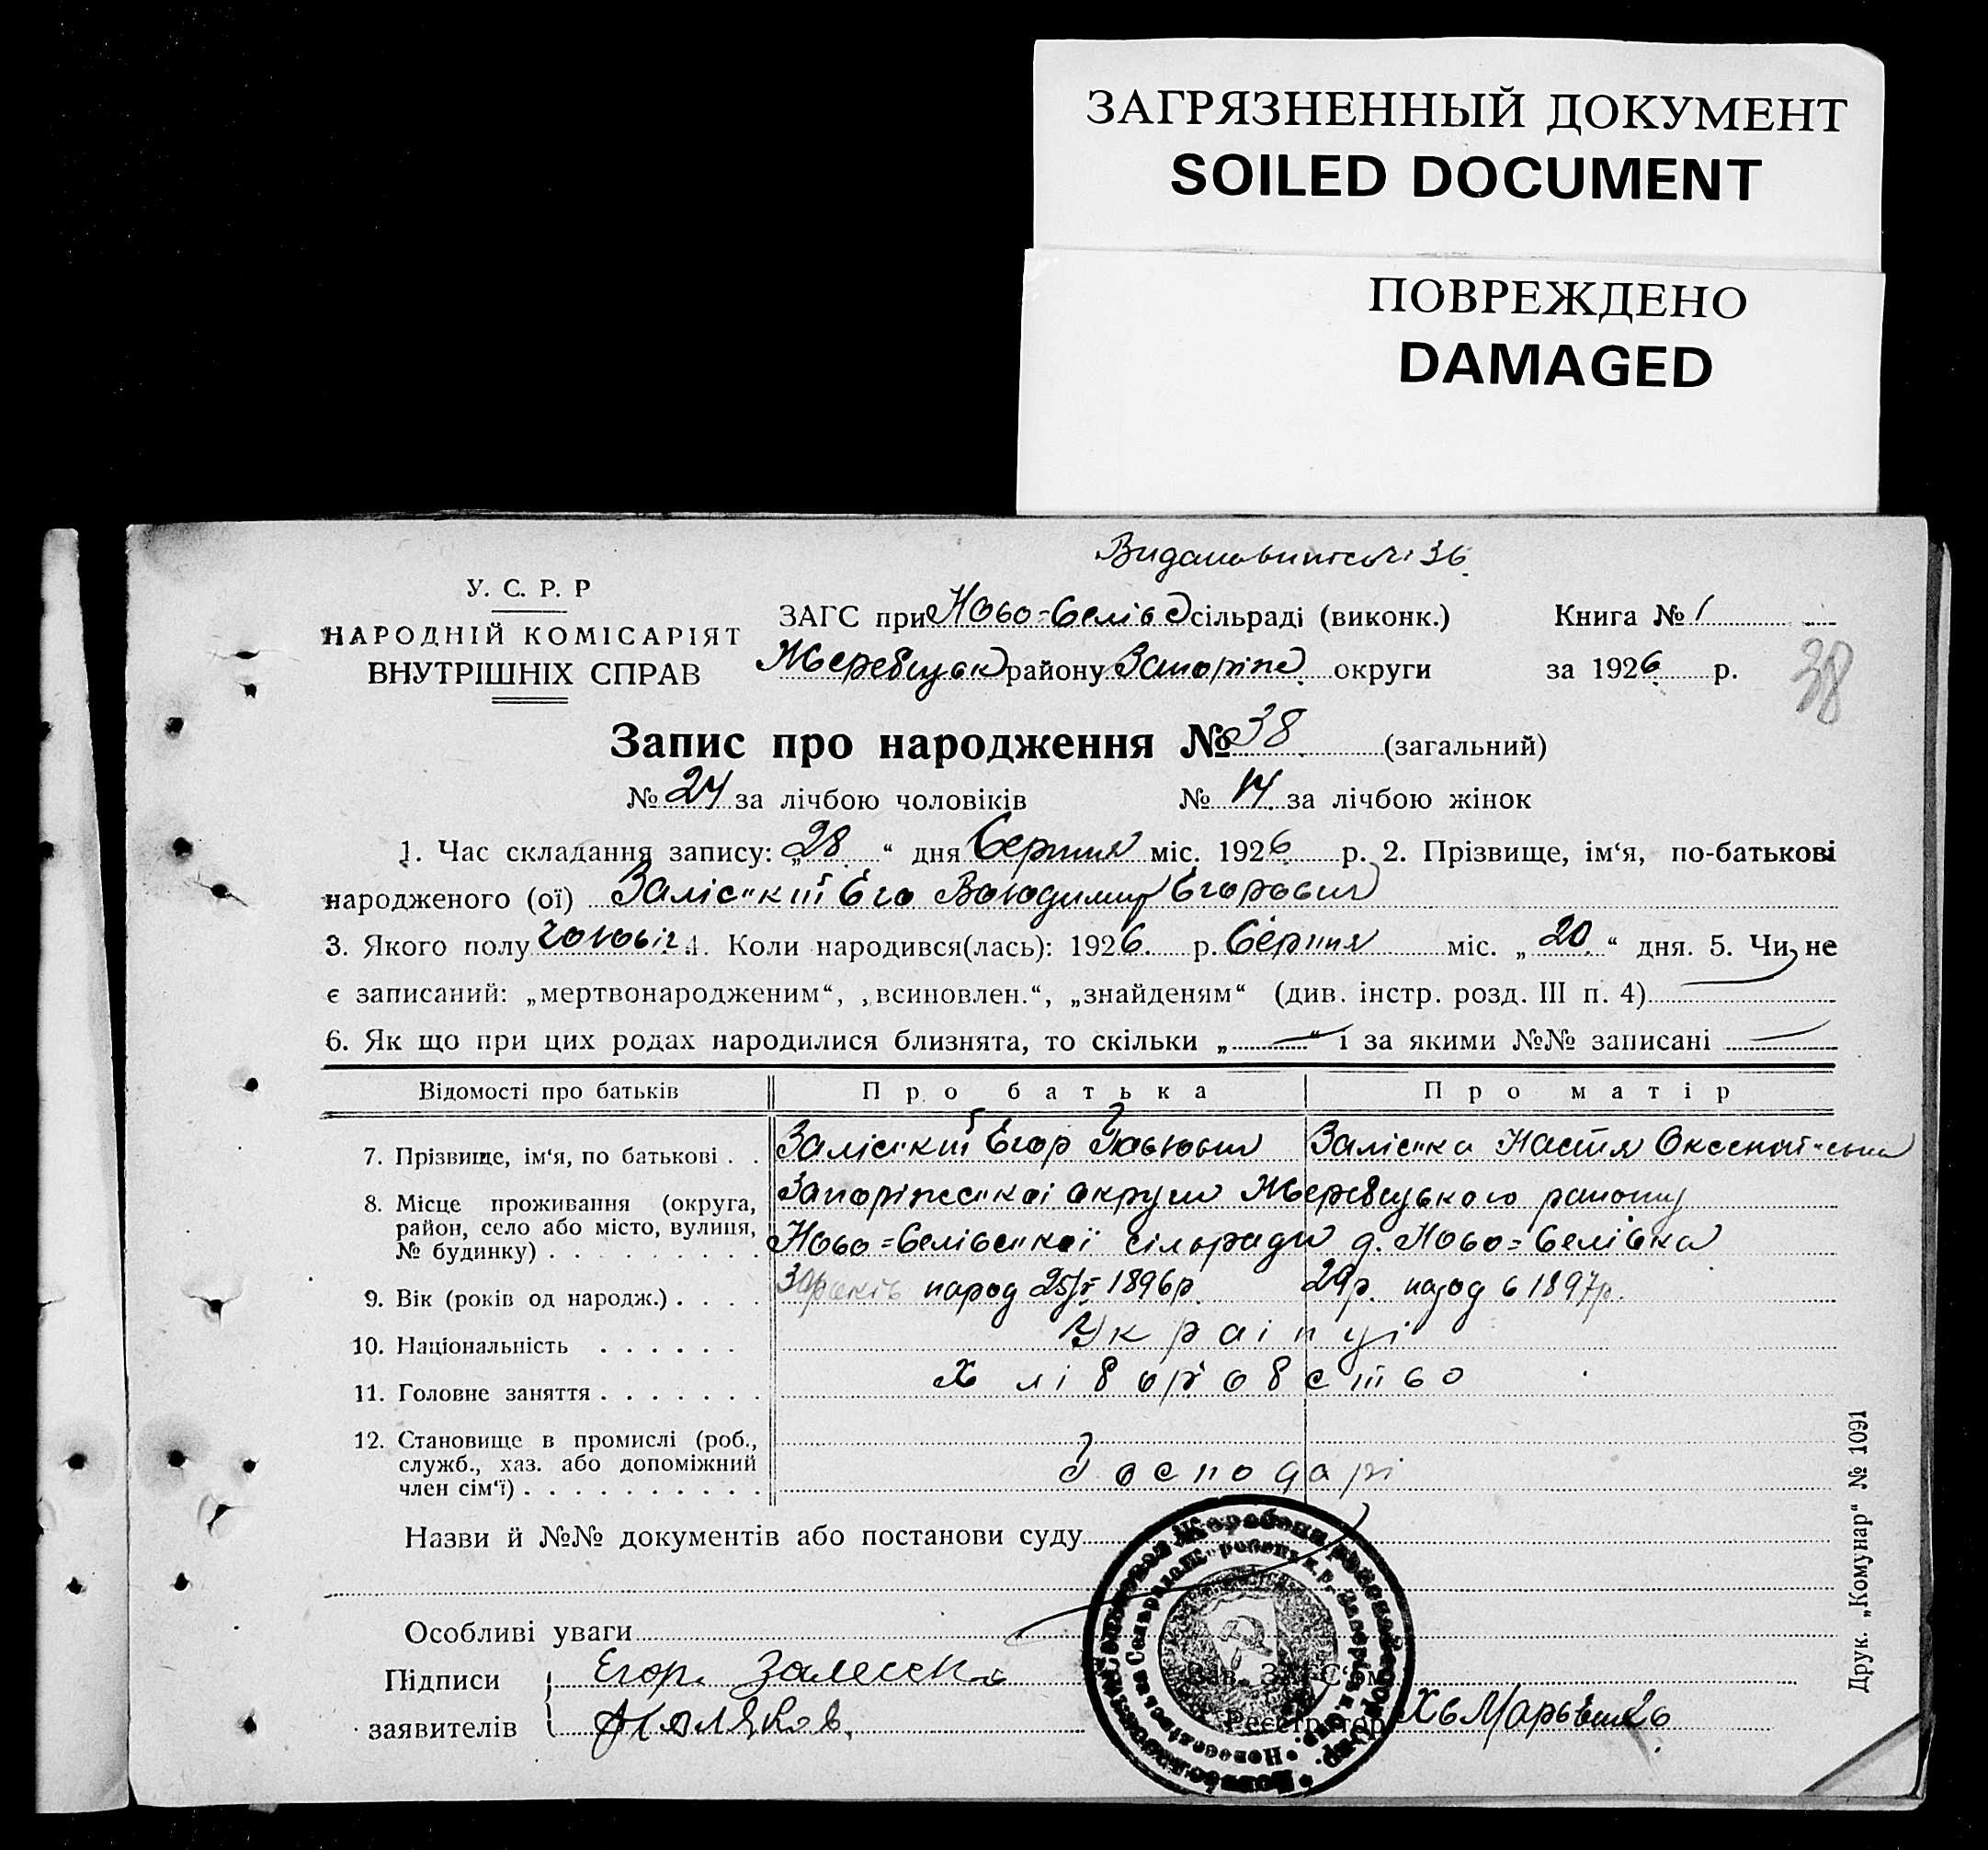 ЗАГРЯЗНЕННЫЙ ДОКУМЕНТ
SOILED DOCUMENT
ПОВРЕЖДЕНО
DAMAGED
36
У. С. Р. Р
НАРОДНІЙ КОМІСАРІЯТ
ВНУТРІШНІХ СПРАВ
ЗАГС при Ново=Селівс сільраді (виконк.) Книга № 1
Жеребецьк району Запоріж. округи за 1926 р.
38
Запис про народження № 38 (загальний)
№ 24 за лічбою чоловіків № 14 за лічбою жінок
1. Час складання запису: „28“ дня Серпня міс. 1926 р. 2. Прізвище, ім‘я, по-батькові
народженого (ої) Заліський Его Володимир Егорович
3. Якого полу чоловіч 4. Коли народився(лась): 1926. р. Серпня міс. „20.“ дня. 5. Чи не
є записаний: „мертвонародженим“, „всиновлен.“, „знайденям“ (див. інстр. розд. III п. 4)
6. Як що при цих родах народилися близнята, то скільки „—“ і за якими №№ записані —
Відомості про батьків Про батька Про матір
7. Прізвище, ім‘я, по батькові . . Заліський Егор Заліська Настя
8. Місце проживання (округа, Запоріжської округи Жеребецького району
район, село або місто, вулиця,
№ будинку) . . . . . . . . . Ново=Селівської сільради д. Ново=Селівка
9. Вік (років од народж.) . . . . 30 років народ 1896р. 29р. народ в 1897р.
10. Національність . . . . . . Українці
11. Головне заняття . . . . . . . Хліборобство
12. Становище в промислі (роб.,
служб., хаз. або допоміжний
член сім‘ї) . . . . . . . . . . Господарі
Назви й №№ документів або постанови суду
Особливі уваги
Підписи Егор. Залесск
заявителів Поляков.
Зав. ЗАГС‘ом
Реєстратор
Друк. „Комунар“ № 1091